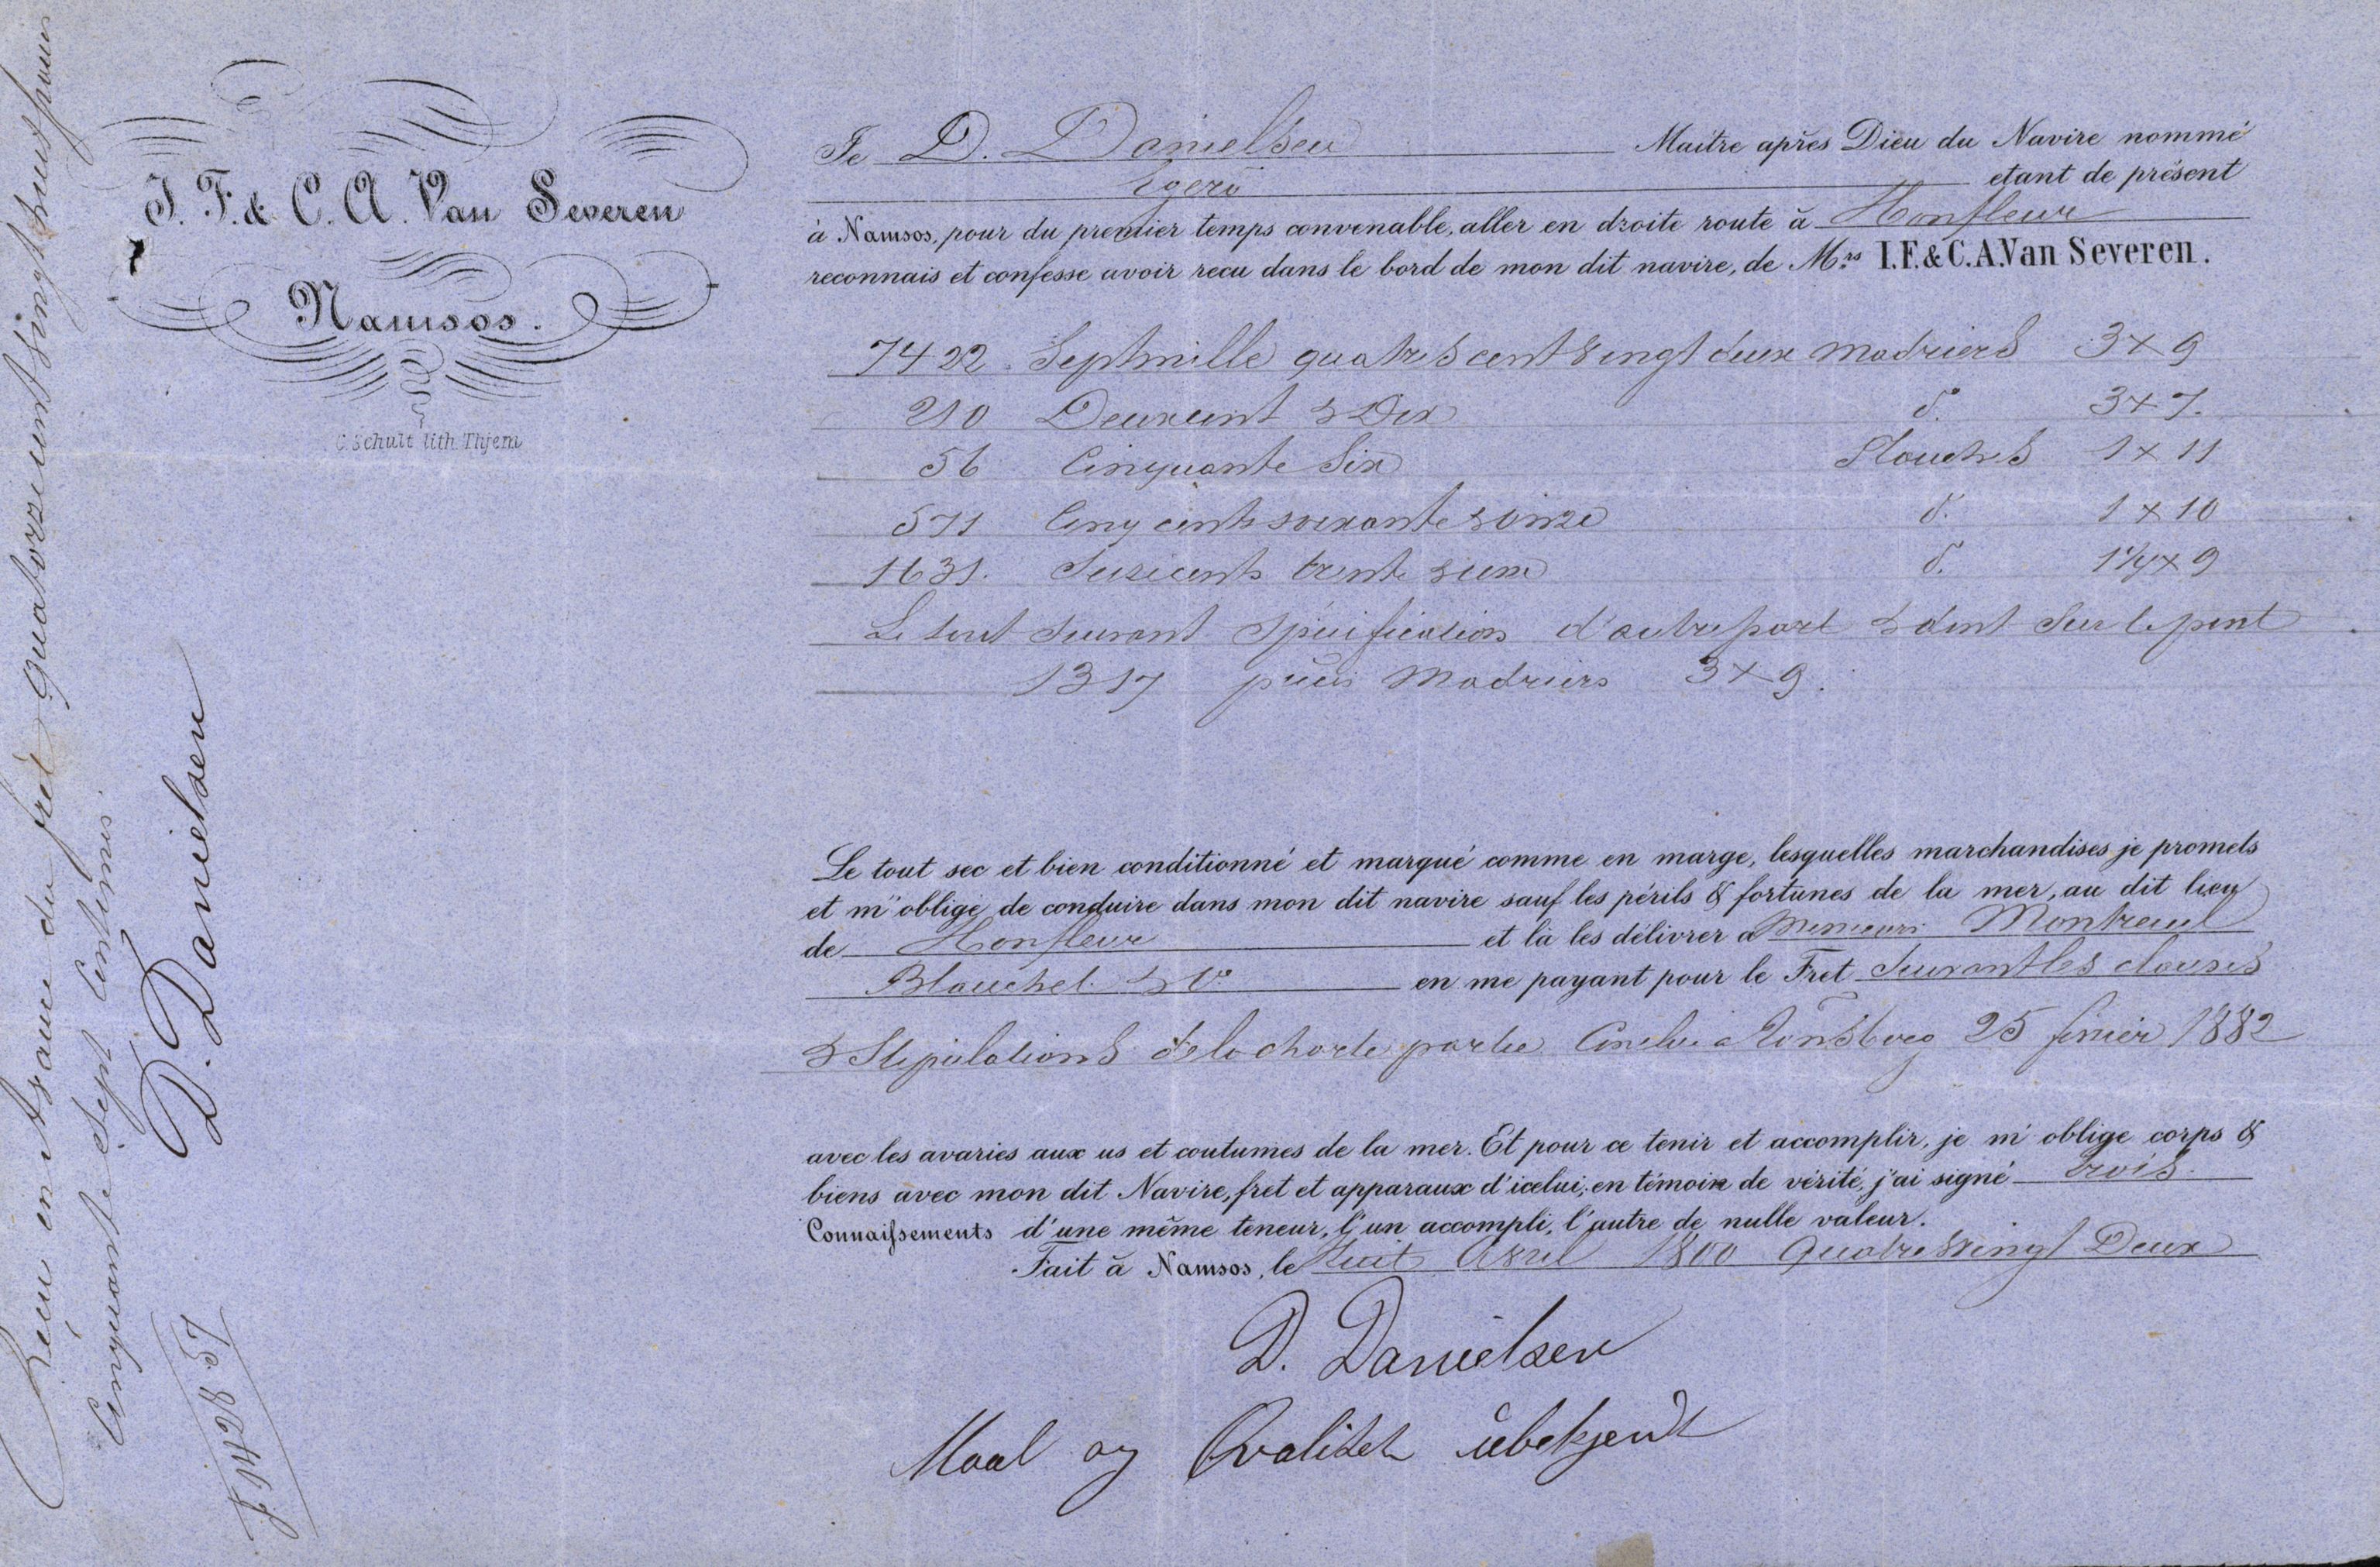 J. F. & C. A. Van Severen
Namsos.
C. Schult lith. Thjem
Je D. Danielsen Maitre après Dieu du Navire nommé
Egerö etant de présent
à Namsos, pour du premier temps convenable, aller en droite route à Honfleur
reconnais et confesse avoir recu dans le bord de mon dit navire, de Mrs I.F. & C.A. Van Severen.
7422. Septmille quatrescent vingt deux Madriers 3 x 9
210 Deuxcent & Dix d°. 3 x 7.
56 Cinquante Six Planches 1 x 11
571 Cinq cents soixante & onze d°. 1 x 10
1631. Seizecents trente & une d°. 1 1/4 x 9
Le tout suivant spécification d'autrepart & dont sur le pont
1317 pièces Madriers 3 x 9.
Le tout sec et bien conditionné et marqué comme en marge, lesquelles marchandises je promets
et m'oblige de conduire dans mon dit navire sauf les périls & fortunes de la mer, au dit lieu
de Honfleur et là les délivrer a Messieurs Montreuil
Blanchet & Co en me payant pour le Fret Suivant les clauses
& Stipulations de la charte partie Conclue a Tönsberg 25 fevrier 1882
avec les avaries aux us et coutumes de la mer. Et pour ce tenir et accomplir, je m'oblige corps &
biens avec mon dit Navire, fret et apparaux d'icelui, en témoin de vérité, j'ai signé trois.
Connaissements d'une même teneur, l'un accompli, l'autre de nulle valeur.
Fait à Namsos, le huit Avril 1800 Quatre Vingt Deux
D. Danielsen
Maal og Qvalitet übekjendt
Réçu en avance du frèt quatorzecent vingt huit francs
Cinquante Sept Centimes.
D. Danielsen
f 1428 57